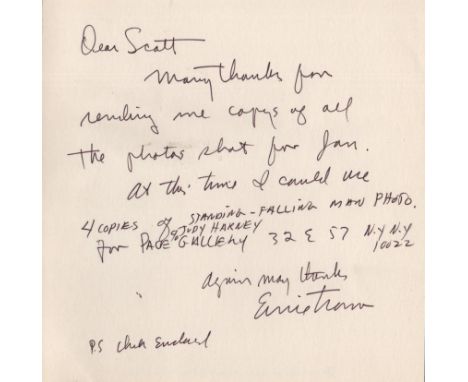 Dear Scott
Many thanks for
sending me copys of all
the photos shot for Jan.
At this time I could use
4 COPIES of STANDING-FALLING MAN PHOTO.
℅ JUDY HARNEY
for PACE GALLERY 32 E 57 N.Y N.Y
10022
Again many thanks
Ernie Trova
P.S Check Enclosed